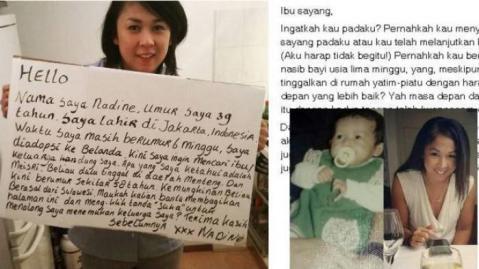 HELLO
Nama saya Nadine, Umur saya 39
tahun. Saya lahir di Jakarta, Indonesia
Waktu saya masih berumur 6 minggu, saya
diadopsi ke Belanda. Kini saya ingin mencari ibu/
keluarga kandung saya. Apa yang saya ketahui adalah
Meisri - Beliau dulu tinggal di daerah Menteng. Dan
kini berumur sekitar 58 tahun. Kemungkinan Beliau
Berasal dari Sulawesi. Maukah kalian bantu Membagikan
halaman ini dan meng-klik tanda "suka" untuk
Menolong saya menemukan keluarga saya? Terima kasih
sebelumnya xxx NADINE
Ibu sayang,
Ingatkah kau padaku? Pernahkah kau meny
sayang padaku atau kau telah melanjutkan
(Aku harap tidak begitu!) Pernahkah kau be
nasib bayi usia lima minggu, yang, meskipu
tinggalkan di rumah yatim-piatu dengan hara
depan yang lebih baik? Yah masa depan da